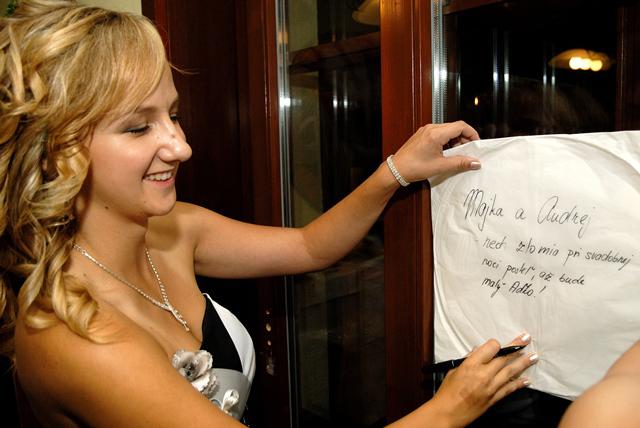 Majka a Andrej
nech zlomia pri svadobnej
noci posteľ, až bude
malý - Adžo!